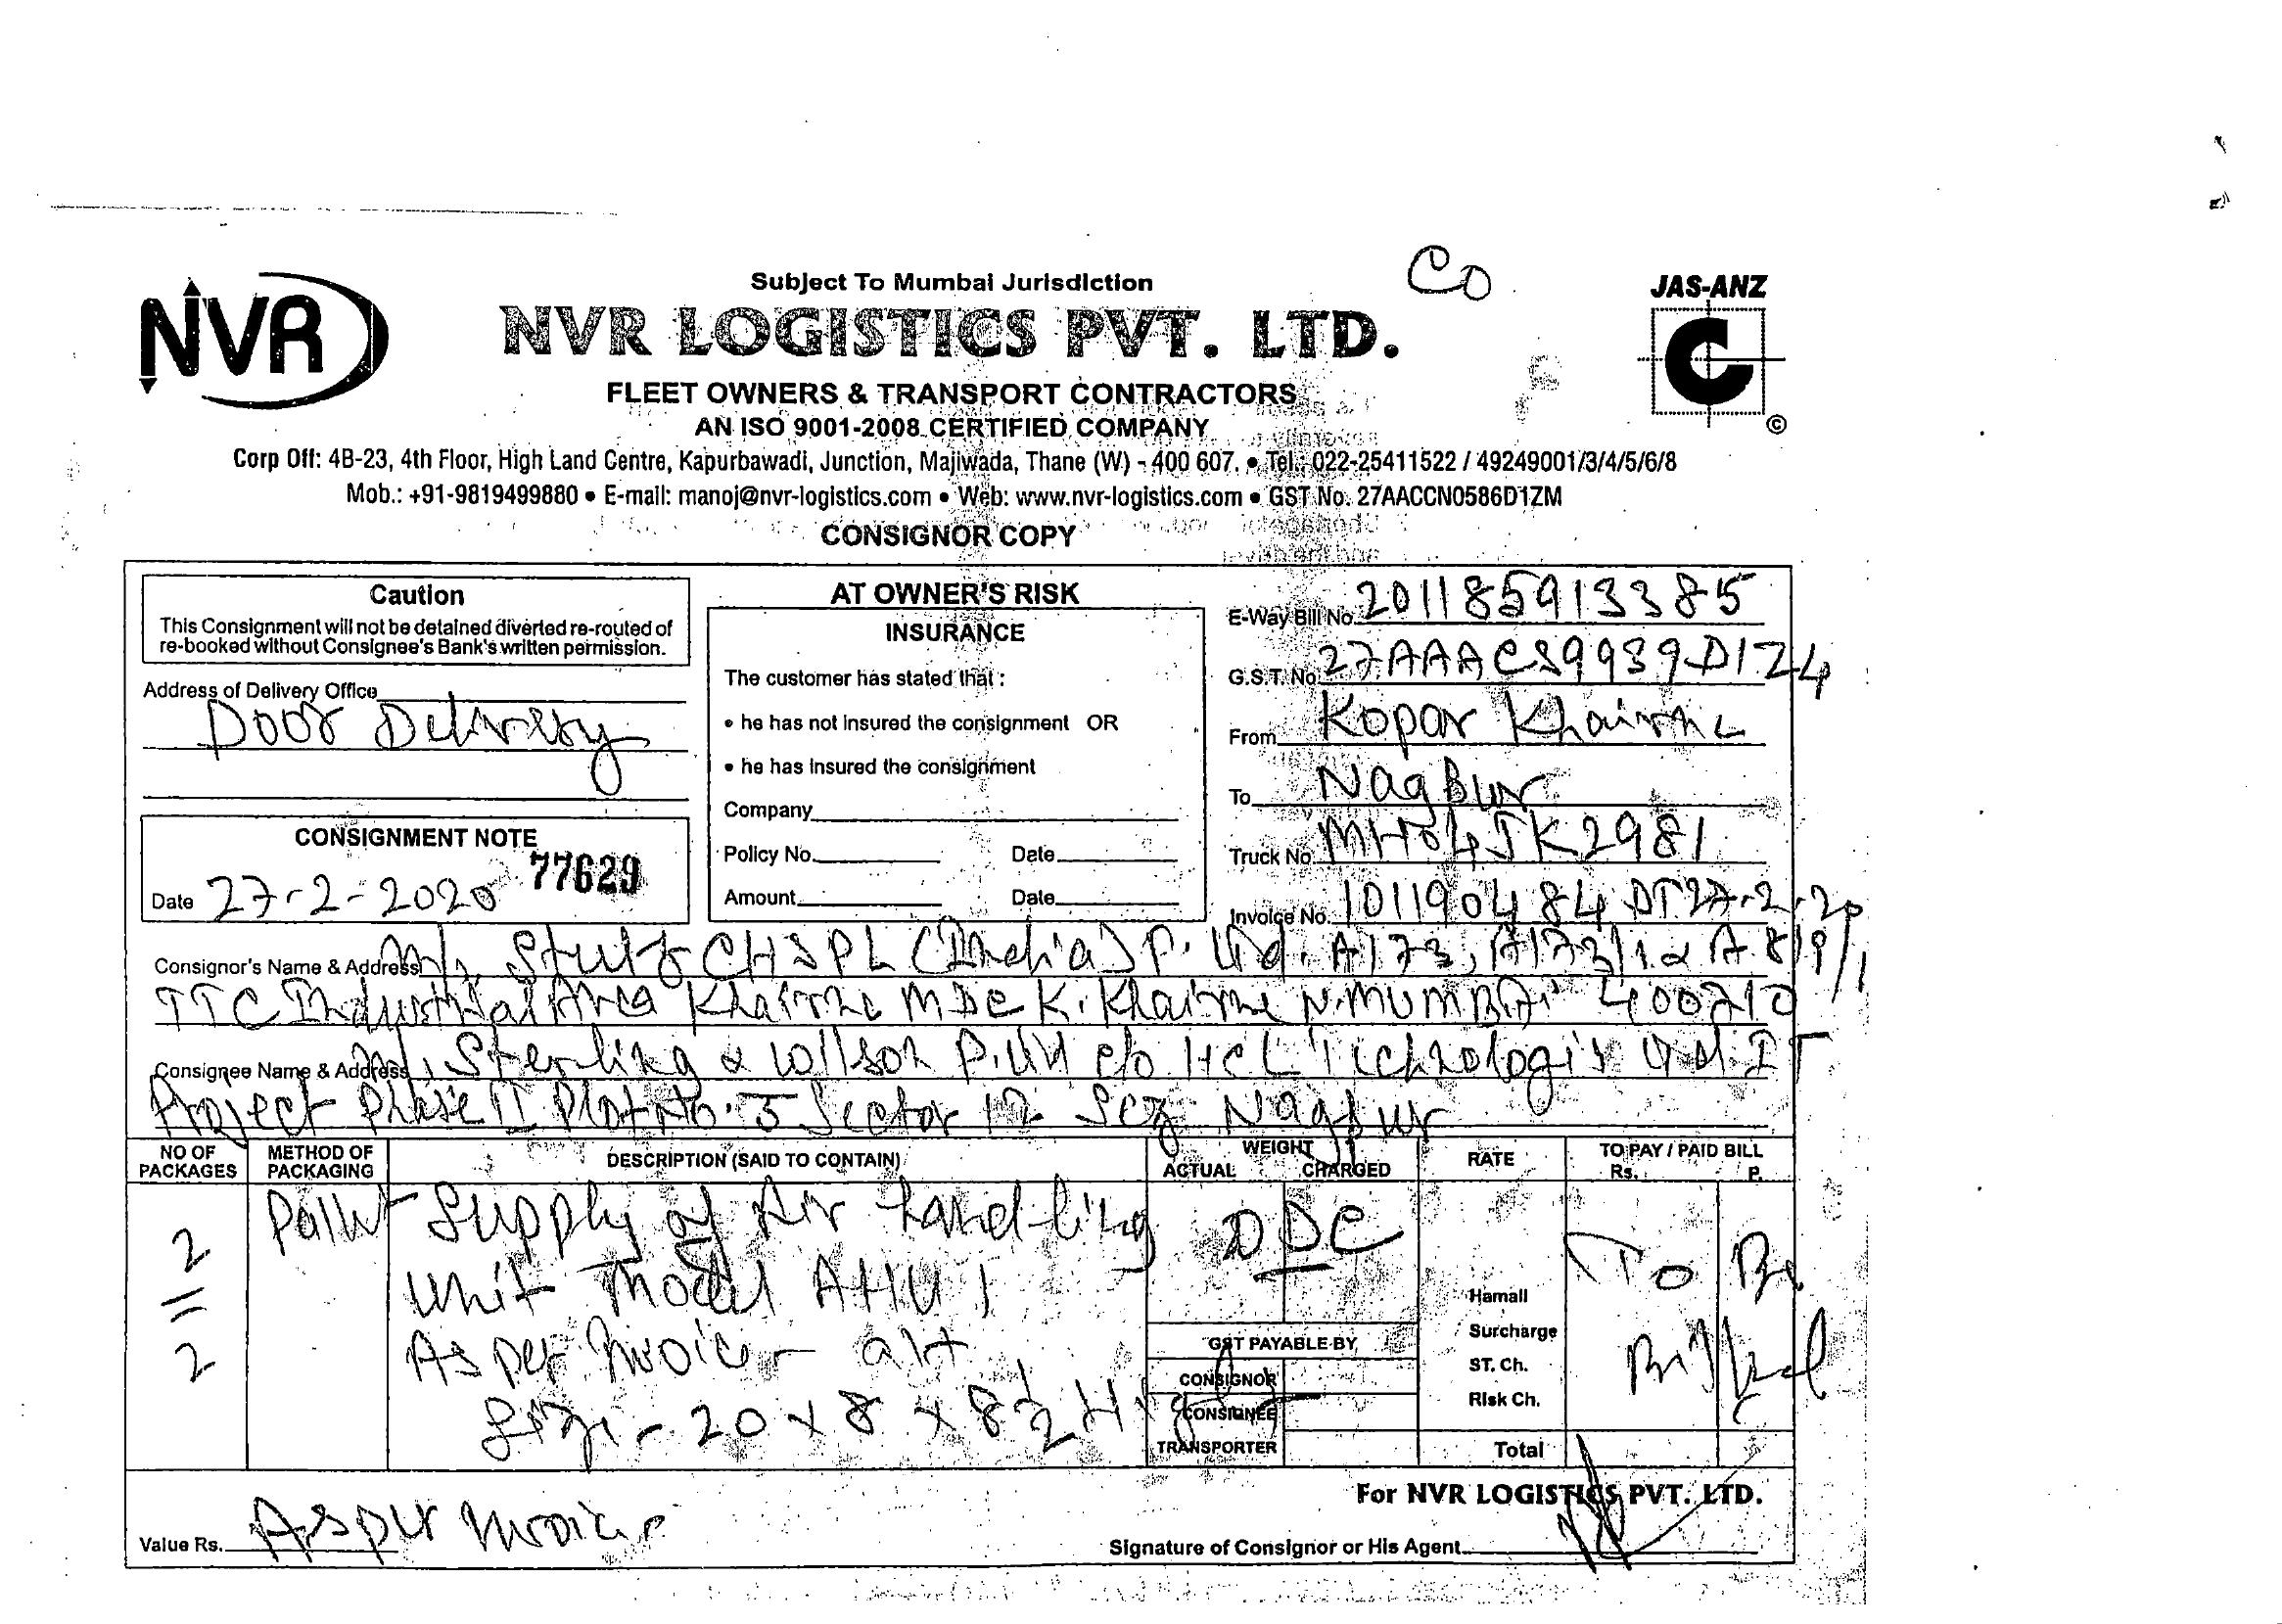 CO
Subject To Mumbai Jurisdiction
JAS-ANZ
NVR
NVR LOGISTICS PVT. LTD.
C
FLEET OWNERS & TRANSPORT CONTRACTORS
AN ISO 9001-2008 CERTIFIED COMPANY
©
Corp Off: 4B-23, 4th Floor, High Land Centre, Kapurbawadi, Junction, Majiwada, Thane (W) - 400 607. • Tel.: 022-25411522 / 49249001/3/4/5/6/8
Mob.: +91-9819499880 • E-mail: manoj@nvr-logistics.com • Web: www.nvr-logistics.com • GST No. 27AACCN0586D1ZM
CONSIGNOR COPY
Caution
This Consignment will not be detained diverted re-routed of
re-booked without Consignee's Bank's written permission.
Address of Delivery Office
Door Delivery
CONSIGNMENT NOTE
77629
Date 27-2-2020
AT OWNER'S RISK
INSURANCE
The customer has stated that :
• he has not insured the consignment OR
• he has insured the consignment
Company
Policy No. Date
Amount Date
E-Way Bill No. 201185913385
G.S.T. No. 27AAACS9939D1Z4
From Kopar Khairne
To Nagpur
Truck No. MH04JK2981
Invoice No. 101190484 DT 27.2.20
Consignor's Name & Address M/s. Stulz CHSPL (India) P. Ltd. A173, A173/1 & A 8/9/1
TTC Industrial Area Khairne MIDC K. Khairne N. Mumbai 400710
Consignee Name & Address M/s Sterling & Wilson P. Ltd c/o HCL Technologis Ltd. IT
Project Phase II Plot No. 5 Sector 12 Sez Nagpur
NO OF PACKAGES METHOD OF PACKAGING DESCRIPTION (SAID TO CONTAIN) WEIGHT ACTUAL CHARGED RATE TO PAY / PAID BILL Rs. P.
2 = 2
Pallet
Supply of Air handling
Unit Model AHU 1
As per Invoice
Size - 20 x 8 x 8½ Hight
GST PAYABLE BY
CONSIGNOR
CONSIGNEE
TRANSPORTER
Hamali
Surcharge
ST. Ch.
Risk Ch.
Total
To Be
Billed
Value Rs. As per Invoice
For NVR LOGISTICS PVT. LTD.
Signature of Consignor or His Agent